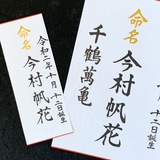 命名
令和二年十月十二日誕生
今村帆花
命名
令和二年十月十二日誕生
今村帆花
千鶴萬亀